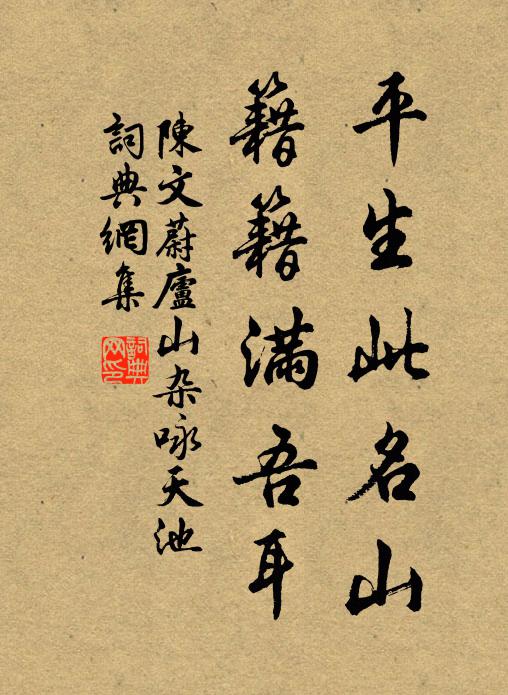 平生此名山
籍籍滿吾耳
陳文蔚廬山杂咏天池
詞典網集
詞典网印